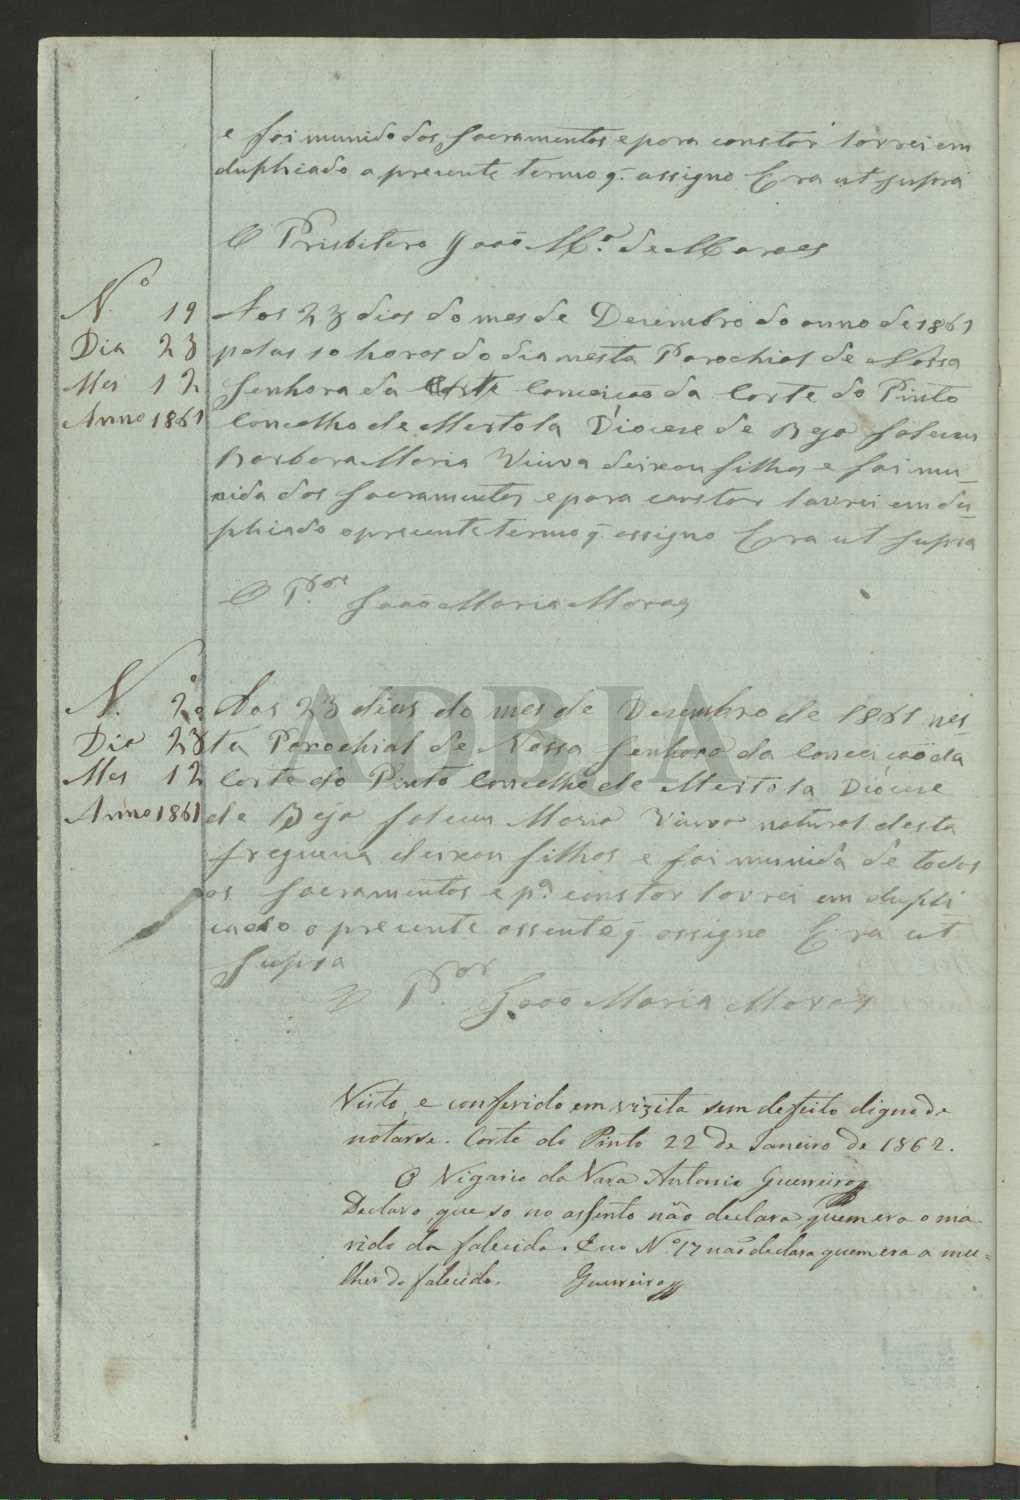 e foi munido dos sacramentos e para constar lavrei em
dupliado o presente termo q. assigno Era ut supra
O Prisbitero João M.ª de Moraes
N.º 19
Dia 23
Mes 12
Anno 1861
Aos 23 dias do mes de Dezembro do anno de 1861
pelas 10 horas do dia nesta Parochial de Nossa
Senhora da Conceicão da Corte do Pinto
Concelho de Mertola Diocese de Beja faleceu
Barbora Maria Viuva deixou filhos e foi mu_
nida dos sacramentos e para constar lavrei em du_
pliado o presente termo q. assigno Era ut supra
O P.or João Maria Moraes
N.º 20
Dia 23
Mes 12
Anno 1861
Aos 23 dias do mes de Dezembro de 1861 nes_
ta Parochial de Nossa Senhora da Conceicão da
Corte do Pinto Concelho de Mertola Diocese
de Beja faleceu Maria Viuva natural desta
freguezia deixou filhos e foi munida de todos
os sacramentos e p.ª constar lavrei em dupli
cado o presente assente q. assigno Era ut
supra
O P.or João Maria Moraes
ADBJA
Visto, e conferido em vizita sem defeito digno de
notarse. Corte do Pinto 22 de Janeiro de 1862.
O Vigario da Vara Antonio Guerreiro
Declaro, que so no assento não declara quem era o ma_
rido da falecida. E no N.º 17 não declara quem era a mu_
lher do falecido. Guerreiro